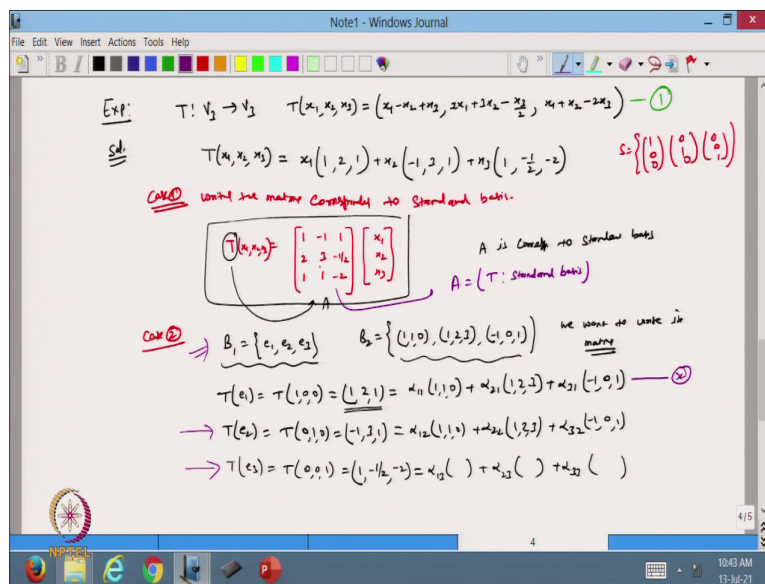 Note1 - Windows Journal
File Edit View Insert Actions Tools Help
Exp: T: V₃ → V₃ T(x₁,x₂,x₃) = (x₁-x₂+x₃, 2x₁+3x₂-x₃/2, x₁+x₂-2x₃) — ①
Sol. T(x₁,x₂,x₃) = x₁(1,2,1) + x₂(-1,3,1) + x₃(1,-1/2,-2) S={(1 0 0) (0 1 0) (0 0 1)}
Case ① write the matrix Corresponds to Standard basis.
T(x₁,x₂,x₃) = [1 -1 1; 2 3 -1/2; 1 1 -2] [x₁; x₂; x₃]
A
A is to Standard basis
A = (T: Standard basis)
Case ② B₁ = {e₁, e₂, e₃} B₂ = {(1,1,0), (1,2,3), (-1,0,1)} we want to write its matrix
T(e₁) = T(1,0,0) = (1,2,1) = α₁₁(1,1,0) + α₂₁(1,2,3) + α₃₁(-1,0,1) —
→ T(e₂) = T(0,1,0) = (-1,3,1) = α₁₂(1,1,0) + α₂₂(1,2,3) + α₃₂(-1,0,1)
→ T(e₃) = T(0,0,1) = (1,-1/2,-2) = α₁₃( ) + α₂₃( ) + α₃₃( )
NPTEL
4/5
4
10:43 AM
13-Jul-21